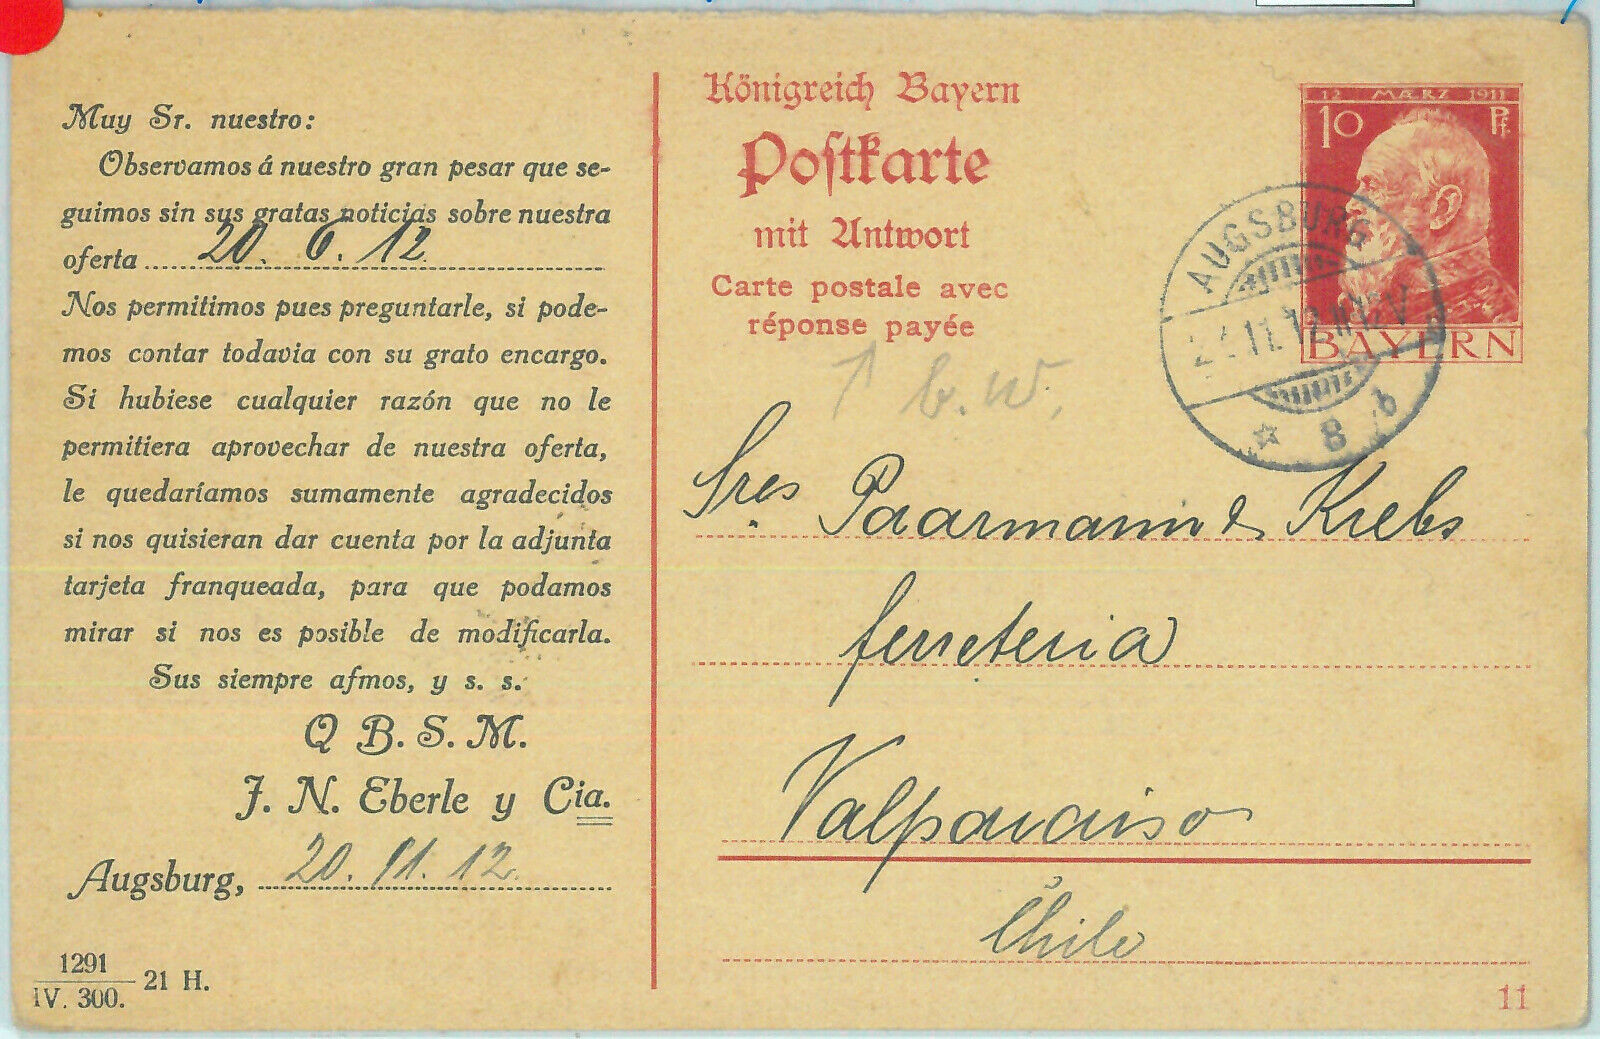 Muy Sr. nuestro:
Observamos á nuestro gran pesar que se-
guimos sin sus gratas noticias sobre nuestra
oferta 20. 6. 12
Nos permitimos pues preguntarle, si pode-
mos contar todavia con su grato encargo.
Si hubiese cualquier razón que no le
permitiera aprovechar de nuestra oferta,
le quedaríamos sumamente agradecidos
si nos quisieran dar cuenta por la adjunta
tarjeta franqueada, para que podamos
mirar si nos es posible de modificarla.
Sus siempre afmos, y s. s.
Q B. S. M.
J. N. Eberle y Cia.
Augsburg, 20. 11. 12.
1291
IV. 300. 21 H.
Königreich Bayern
Postkarte
mit Antwort
Carte postale avec
réponse payée
b. w.
Sres Paarmann & Krebs
ferreteria
Valparaiso
Chile
11
12 MÆRZ 1911
10 Pf
BAYERN
AUGSBURG
11.12
8 b